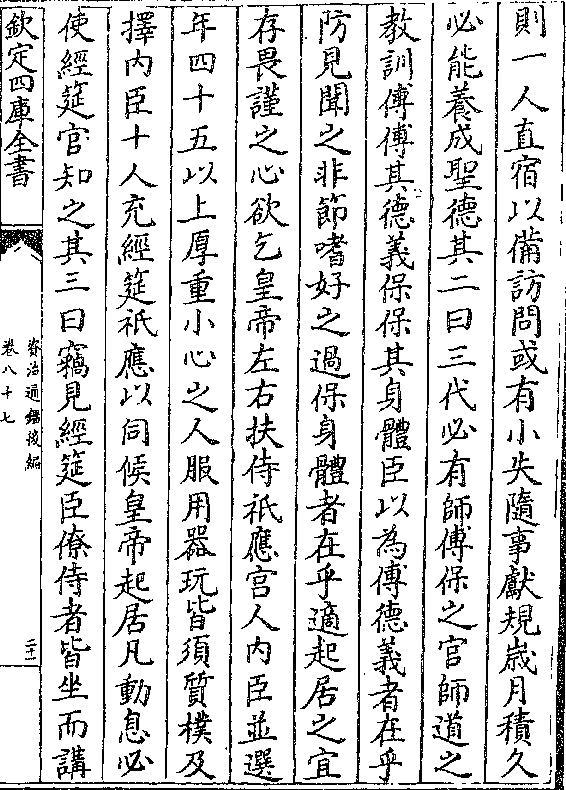 則一人直宿以備訪問或有小失隨事獻規歲月積久
必能養成聖德其二曰三代必有師傅保之官師道之
教訓傅傅其德義保保其身體臣以為傅德義者在乎
防見聞之非節嗜好之過保身體者在乎適起居之宜
存畏謹之心欲乞皇帝左右扶侍祇應宮人內臣並選
年四十五以上厚重小心之人服用器玩皆須質樸及
擇內臣十人充經筵祇應以伺候皇帝起居凡動息必
使經筵官知之其三曰竊見經筵臣僚侍者皆坐而講
欽定四庫全書
資治通鑑後編
卷八十七
二十一